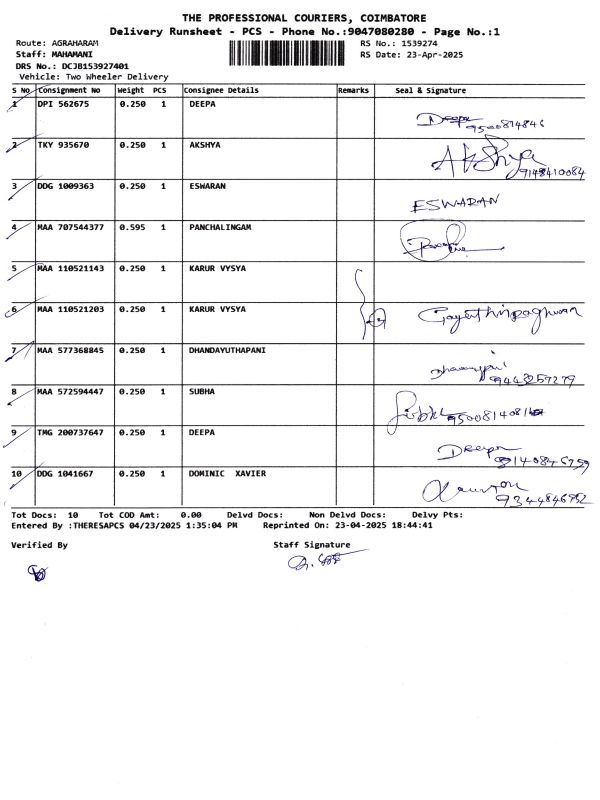 THE PROFESSIONAL COURIERS, COIMBATORE
Delivery Runsheet - PCS - Phone No.:9047080280 - Page No.:1
Route: AGRAHARAM RS No.: 1539274
Staff: MAHAMANI RS Date: 23-Apr-2025
DRS No.: DCJB153927401
Vehicle: Two Wheeler Delivery
S No Consignment No Weight PCS Consignee Details Remarks Seal & Signature
1 DPI 562675 0.250 1 DEEPA
Deepa
9500814846
2 TKY 935670 0.250 1 AKSHYA
Akshya
9148410084
3 DDG 1009363 0.250 1 ESWARAN
ESWARAN
4 MAA 707544377 0.595 1 PANCHALINGAM
5 MAA 110521143 0.250 1 KARUR VYSYA
6 MAA 110521203 0.250 1 KARUR VYSYA
7 MAA 577368845 0.250 1 DHANDAYUTHAPANI
9443257279
8 MAA 572594447 0.250 1 SUBHA
9 TMG 200737647 0.250 1 DEEPA
Deepa
10 DDG 1041667 0.250 1 DOMINIC XAVIER
Tot Docs: 10 Tot COD Amt: 0.00 Delvd Docs: Non Delvd Docs: Delvy Pts:
Entered By :THERESAPCS 04/23/2025 1:35:04 PM Reprinted On: 23-04-2025 18:44:41
Verified By Staff Signature